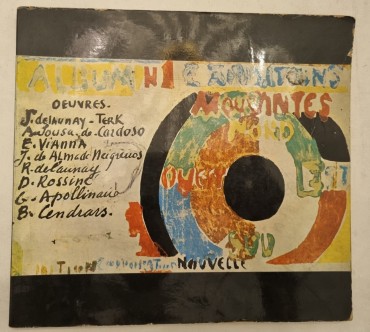 ALBUM N1 EXPOSITIONS
MOUVANTES
OEUVRES.
S. delaunay-TERK
A. Sousa. de. Cardoso
E. ViANNA
J. de Almada Negreiros
R. delaunay
D. ROSSINÉ
G. Apollinaire
B. Cendrars.
NORD
OUEST EST
SUD
NOUVELLE